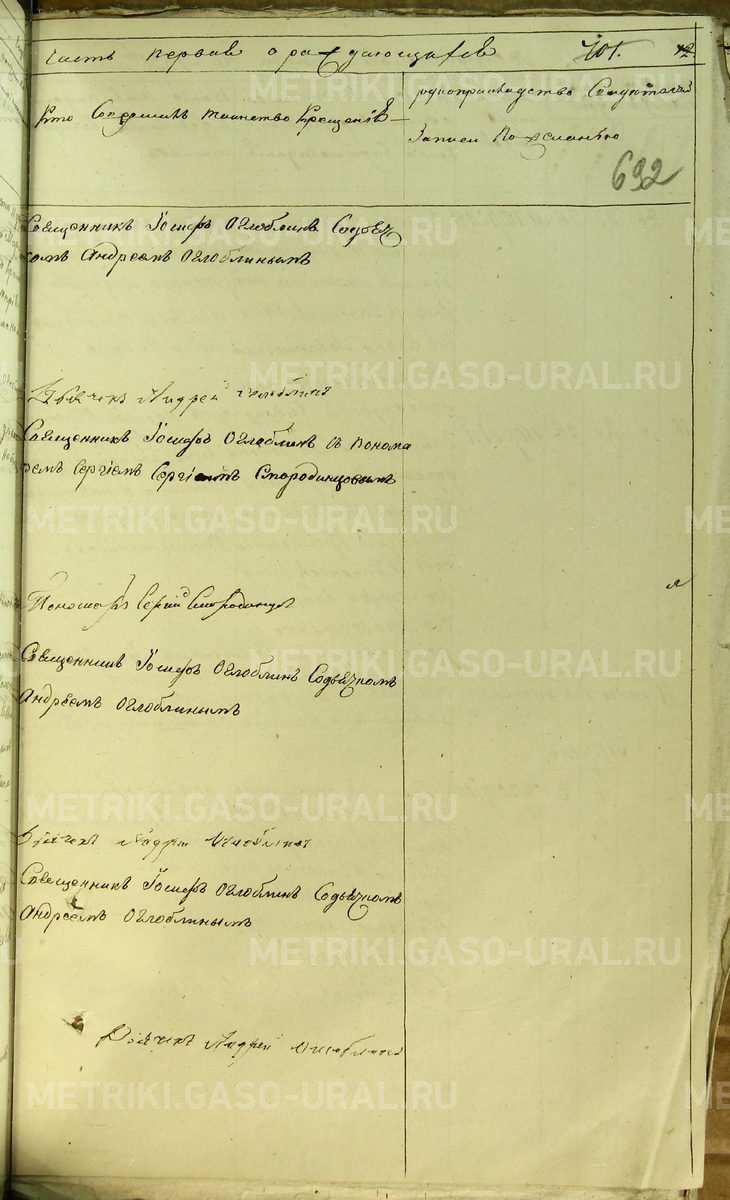 часть первая о раждающихся 401. 42
Кто Совершилъ таинство Крещенія
рукоприкладство Свидетелей
Записи По желанью
692
Священникъ Іосифъ Оглоблинъ Содьяч
комъ Андреемъ Оглоблинымъ
Дьячекъ Андрей Оглоблинъ
Священникъ Іосифъ Оглоблинъ съ понома
ремъ Сергіемъ Сергіемъ Смородинцовымъ
Пономарь Сергій Смородинцовъ
Священникъ Іосифъ Оглоблинъ Содьячкомъ
Андреемъ Оглоблинымъ
Дьячекъ Андрей Оглоблинъ
Священникъ Іосифъ Оглоблинъ Содьячкомъ
Андреемъ Оглоблинымъ
Дьячекъ Андрей Оглоблинъ
METRIKI.GASO-URAL.RU